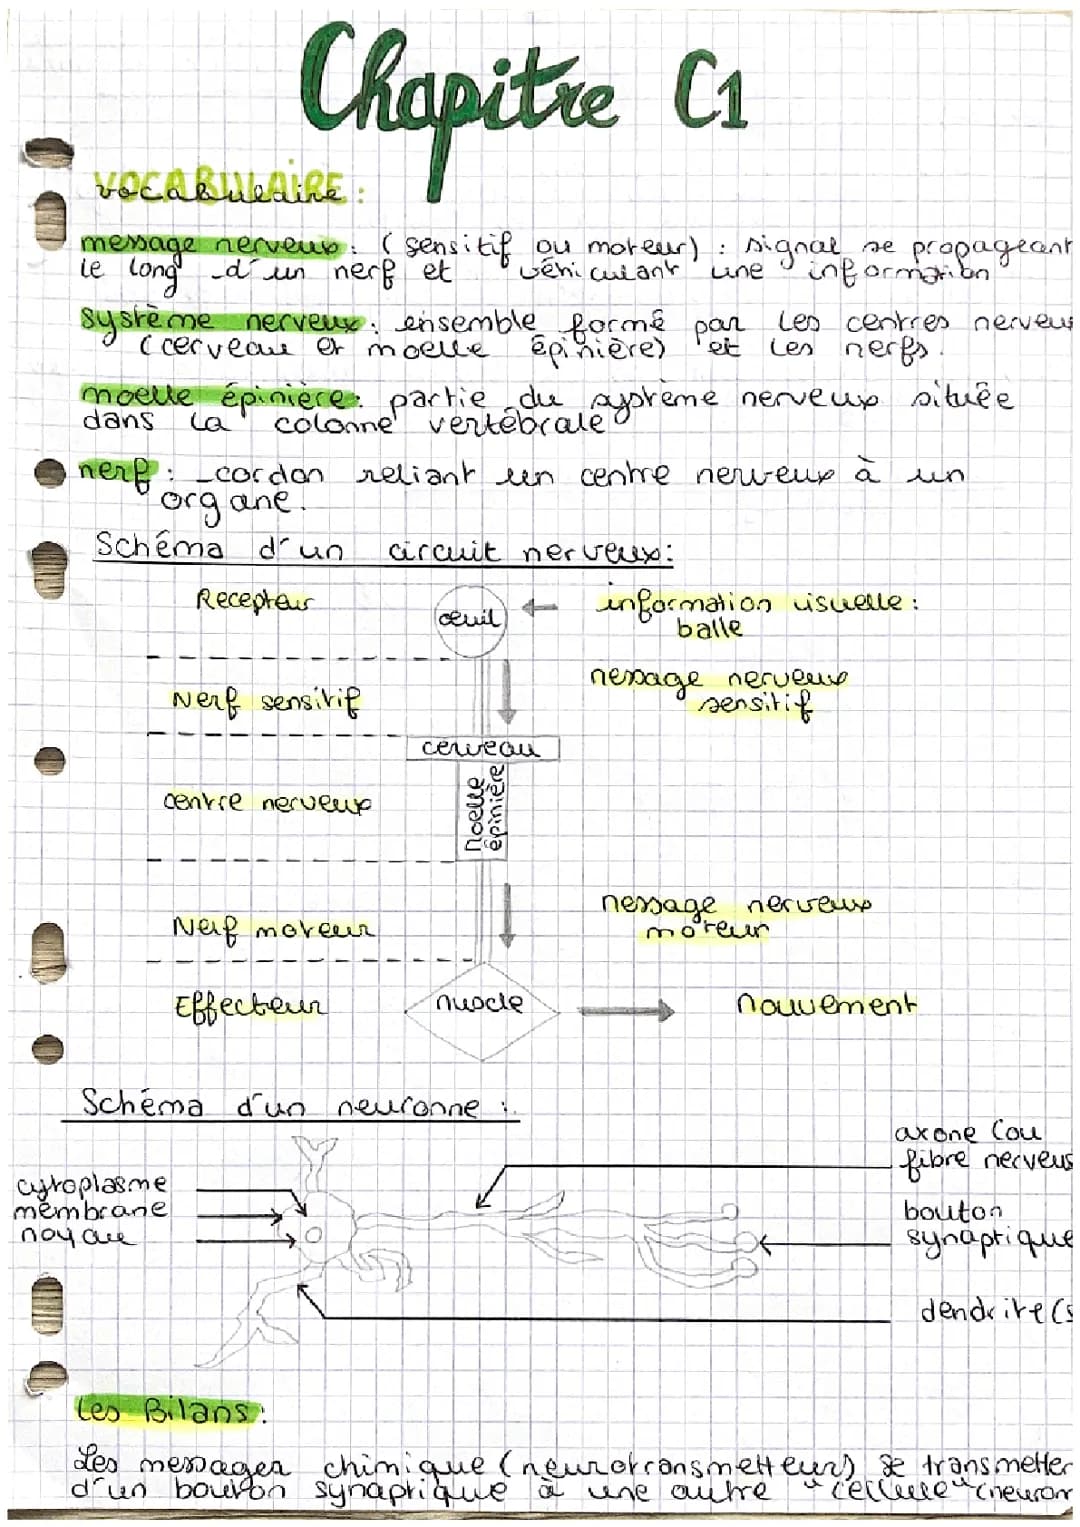 Chapitre C1
VOCABULAIRE :
message nerveux : ( sensitif ou moteur) : signal se propageant
le long d'un nerf et véhiculant une information
système nerveux : ensemble formé par les centres nerveux
(cerveau et moelle épinière) et les nerfs.
moelle épinière : partie du système nerveux située
dans la colonne vertébrale
nerf : cordon reliant un centre nerveux à un
organe.
Schéma d'un circuit nerveux :
Recepteur
oeuil
information visuelle :
balle
Nerf sensitif
message nerveux
sensitif
cerveau
centre nerveux
moelle
épinière
Nerf moteur
message nerveux
moteur
Effecteur
muscle
mouvement
Schéma d'un neuronne :
axone (ou
fibre nerveus
cytoplasme
membrane
noyau
bouton
synaptique
dendrite(s
Les Bilans :
Les messager chimique (neurotransmetteur) se transmetter
d'un bouton synaptique à une autre "cellule" (neuron